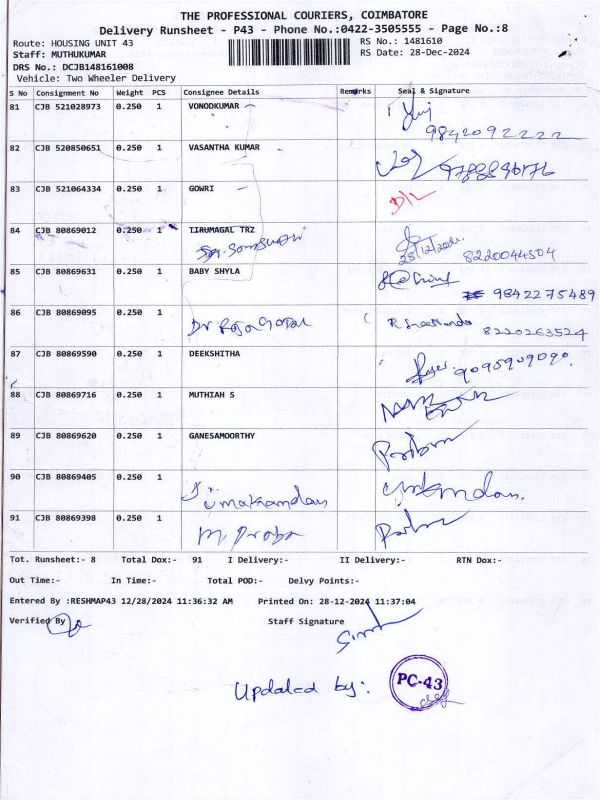 THE PROFESSIONAL COURIERS, COIMBATORE
Delivery Runsheet - P43 - Phone No.:0422-3505555 - Page No.:8
Route: HOUSING UNIT 43 RS No.: 1481610
Staff: MUTHUKUMAR RS Date: 28-Dec-2024
DRS No.: DCJB148161008
Vehicle: Two Wheeler Delivery
S No Consignment No Weight PCS Consignee Details Remarks Seal & Signature
81 CJB 521028973 0.250 1 VONODKUMAR
9842092222
82 CJB 520850651 0.250 1 VASANTHA KUMAR
83 CJB 521064334 0.250 1 GOWRI D/L
84 CJB 80869012 0.250 1 TIRUMAGAL TRZ
28/12/2024 8220044504
85 CJB 80869631 0.250 1 BABY SHYLA
9842275489
86 CJB 80869095 0.250 1
Dr Rajagopal
8220263524
87 CJB 80869590 0.250 1 DEEKSHITHA
9095909090
88 CJB 80869716 0.250 1 MUTHIAH S
89 CJB 80869620 0.250 1 GANESAMOORTHY
90 CJB 80869405 0.250 1
91 CJB 80869398 0.250 1
Tot. Runsheet:- 8 Total Dox:- 91 I Delivery:- II Delivery:- RTN Dox:-
Out Time:- In Time:- Total POD:- Delvy Points:-
Entered By :RESHMAP43 12/28/2024 11:36:32 AM Printed On: 28-12-2024 11:37:04
Verified By Staff Signature
Updated by:. PC-43